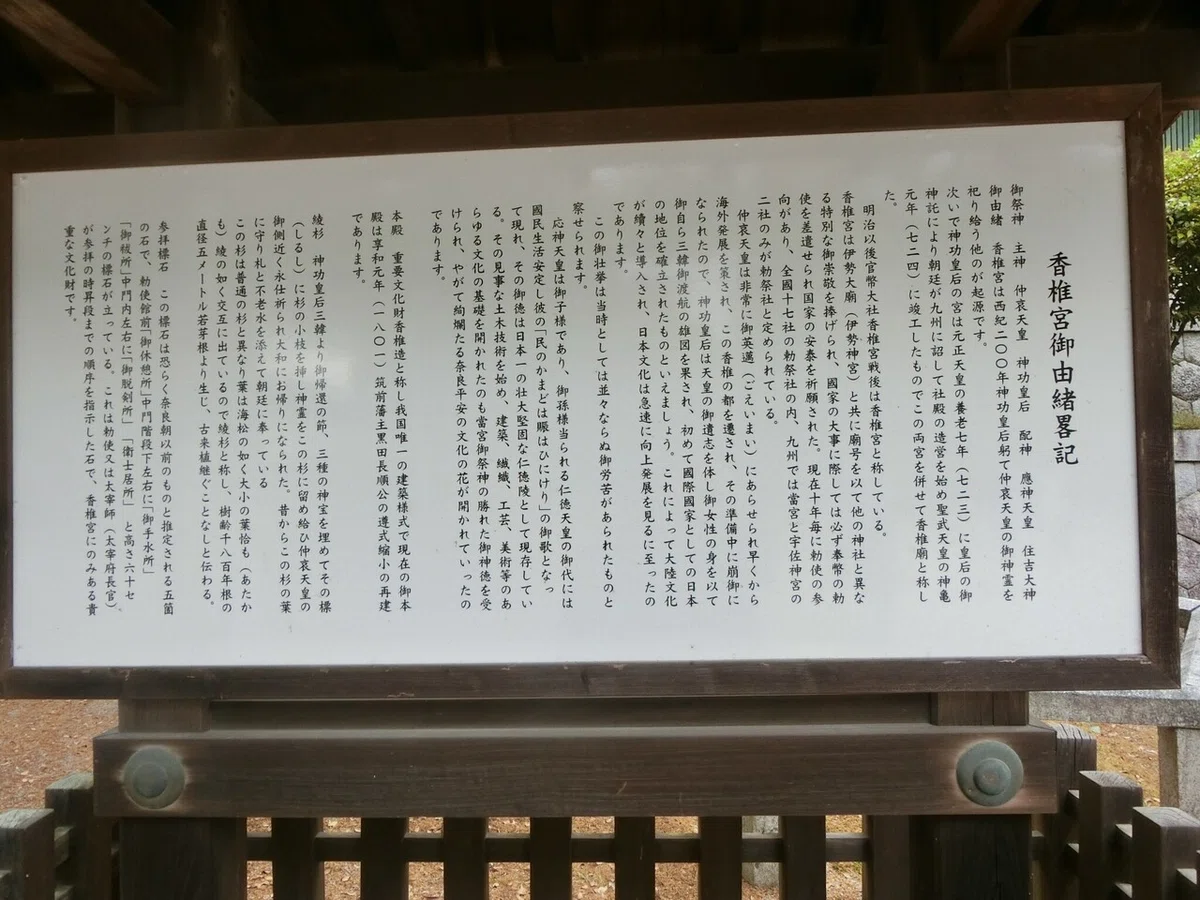 香椎宮御由緒畧記
御祭神　主神　仲哀天皇　神功皇后　配神　應神天皇　住吉大神
御由緒　香椎宮は西紀二〇〇年神功皇后躬て仲哀天皇の御神霊を
祀り給う他のが起源です。
次いで神功皇后の宮は元正天皇の養老七年（七二三）に皇后の御
神託により朝廷が九州に詔して社殿の造営を始め聖武天皇の神亀
元年（七二四）に竣工したものでこの両宮を併せて香椎廟と称し
た。
明治以後官幣大社香椎宮戦後は香椎宮と称している。
香椎宮は伊勢大廟（伊勢神宮）と共に廟号を以て他の神社と異な
る特別な御崇敬を捧げられ、國家の大事に際しては必ず奉幣の勅
使を差遣せられ国家の安泰を祈願された。現在十年毎に勅使の参
向があり、全國十七社の勅祭社の内、九州では當宮と宇佐神宮の
二社のみが勅祭社と定められている。
仲哀天皇は非常に御英邁（ごえいまい）にあらせられ早くから
海外発展を策され、この香椎の都を遷され、その準備中に崩御に
なられたので、神功皇后は天皇の御遺志を体し御女性の身を以て
御自ら三韓御渡航の雄図を果され、初めて國際國家としての日本
の地位を確立されたものといえましょう。これによって大陸文化
が續々と導入され、日本文化は急速に向上発展を見るに至ったの
であります。
この御壮挙は当時としては並々ならぬ御労苦があられたものと
察せられます。
応神天皇は御子様であり、御孫様当られる仁徳天皇の御代には
國民生活安定し彼の「民のかまどは賑はひにけり」の御歌となっ
て現れ、その御徳は日本一の壮大堅固な仁徳陵として現存してい
る。その見事な土木技術を始め、建築、繊織、工芸、美術等のあ
らゆる文化の基礎を開かれたのも當宮御祭神の勝れた御神徳を受
けられ、やがて絢爛たる奈良平安の文化の花が開かれていったの
であります。
本殿　重要文化財香椎造と称し我国唯一の建築様式で現在の御本
殿は享和元年（一八〇一）筑前藩主黒田長順公の遵式縮小の再建
であります。
綾杉　神功皇后三韓より御帰還の節、三種の神宝を埋めてその標
（しるし）に杉の小枝を挿し神霊をこの杉に留め給ひ仲哀天皇の
御側近く永仕祈られ大和にお帰りになられた。昔からこの杉の葉
に守り札と不老水を添えて朝廷に奉っている
この杉は普通の杉と異なり葉は海松の如く大小の葉恰も（あたか
も）綾の如く交互に出ているので綾杉と称し、樹齢千八百年根の
直径五メートル若芽根より生じ、古来植継ぐことなしと伝わる。
参拝標石　この標石は恐らく奈良朝以前のものと推定される五箇
の石で、勅使館前「御休憩所」中門階段下左右に「御手水所」
「御祓所」中門内左右に「御脱剣所」「衛士居所」　と高さ六十セ
ンチの標石が立っている。これは勅使又は太宰師（太宰府長官）、
が参拝の時昇段までの順序を指示した石で、香椎宮にのみある貴
重な文化財です。